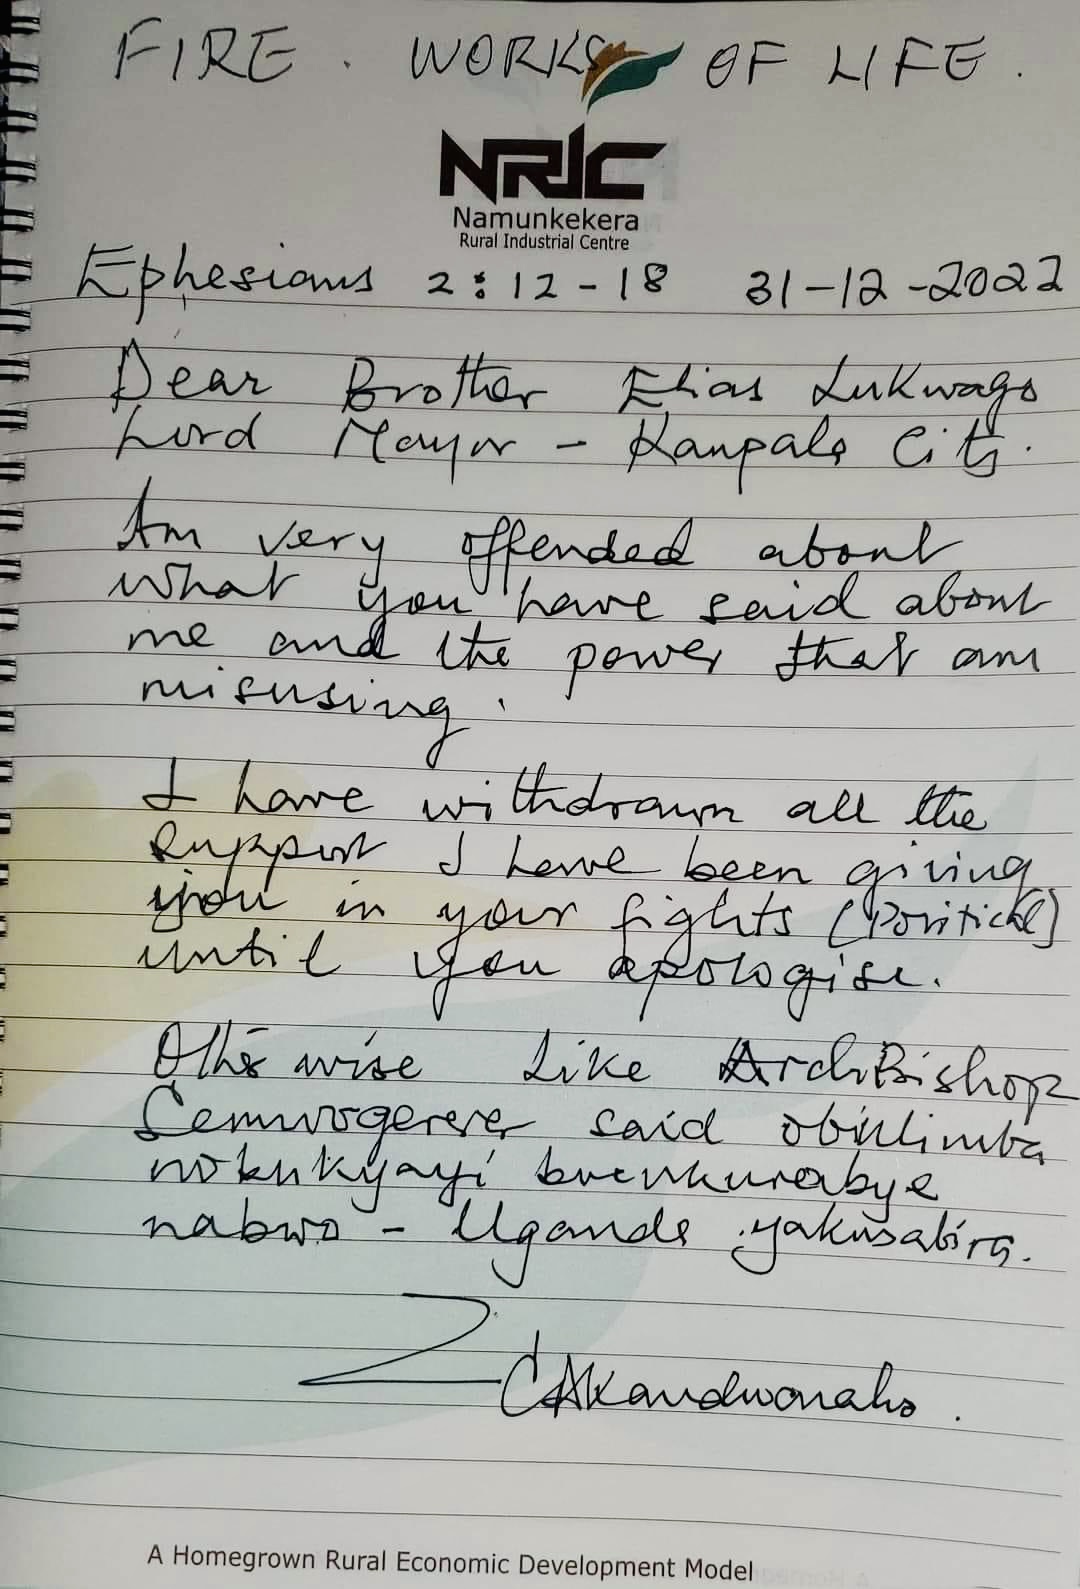 FIRE. WORKS OF LIFE.
NRIC
Namunkekera
Rural Industrial Centre
Ephesians 2:12-18 31-12-2022
Dear Brother Elias Lukwago
Lord Mayor - Kampala City.
Am very offended about
what you have said about
me and the power that am
misusing.
I have withdrawn all the
support I have been giving
you in your fights (Political)
until you apologise.
Otherwise Like ArchBishop
Semwogerere said obulimba
nokukyayi bwenkurabye
nabwo - Uganda yakusabira.
CAKandwonaho.
A Homegrown Rural Economic Development Model